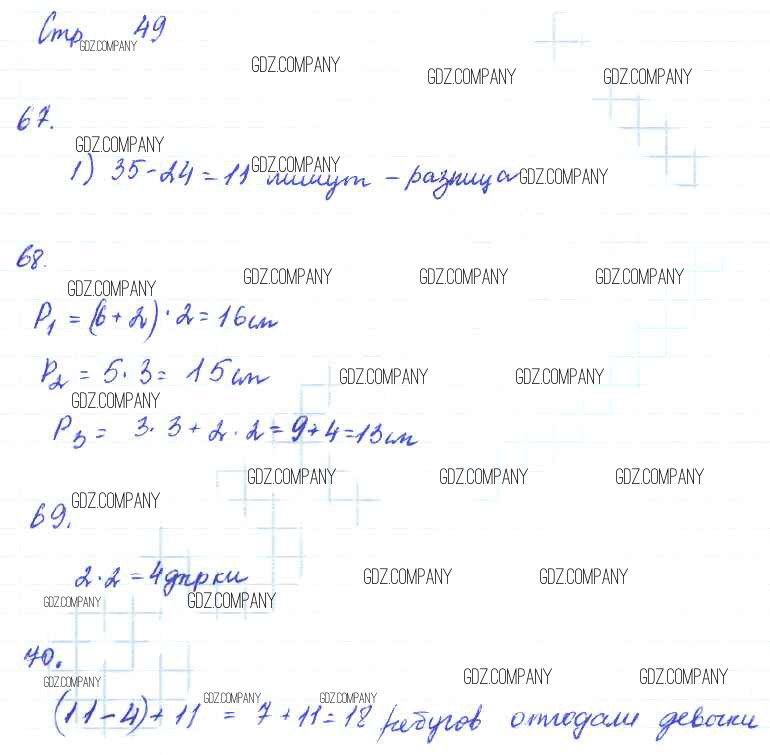 Стр GDZ.COMPANY 49
GDZ.COMPANY GDZ.COMPANY GDZ.COMPANY
67.
GDZ.COMPANY
1) 35-24=11 минут - разница GDZ.COMPANY GDZ.COMPANY
68.
GDZ.COMPANY GDZ.COMPANY GDZ.COMPANY GDZ.COMPANY
P1 = (6+2)·2=16см
P2 = 5·3= 15см GDZ.COMPANY GDZ.COMPANY
GDZ.COMPANY
P3 = 3·3+2·2=9+4=13см
GDZ.COMPANY GDZ.COMPANY GDZ.COMPANY
69. GDZ.COMPANY
2·2=4дырки GDZ.COMPANY GDZ.COMPANY
GDZ.COMPANY GDZ.COMPANY
70.
GDZ.COMPANY GDZ.COMPANY GDZ.COMPANY
GDZ.COMPANY GDZ.COMPANY
(11-4)+11 = 7+11=18 ребусов отгадали девочки